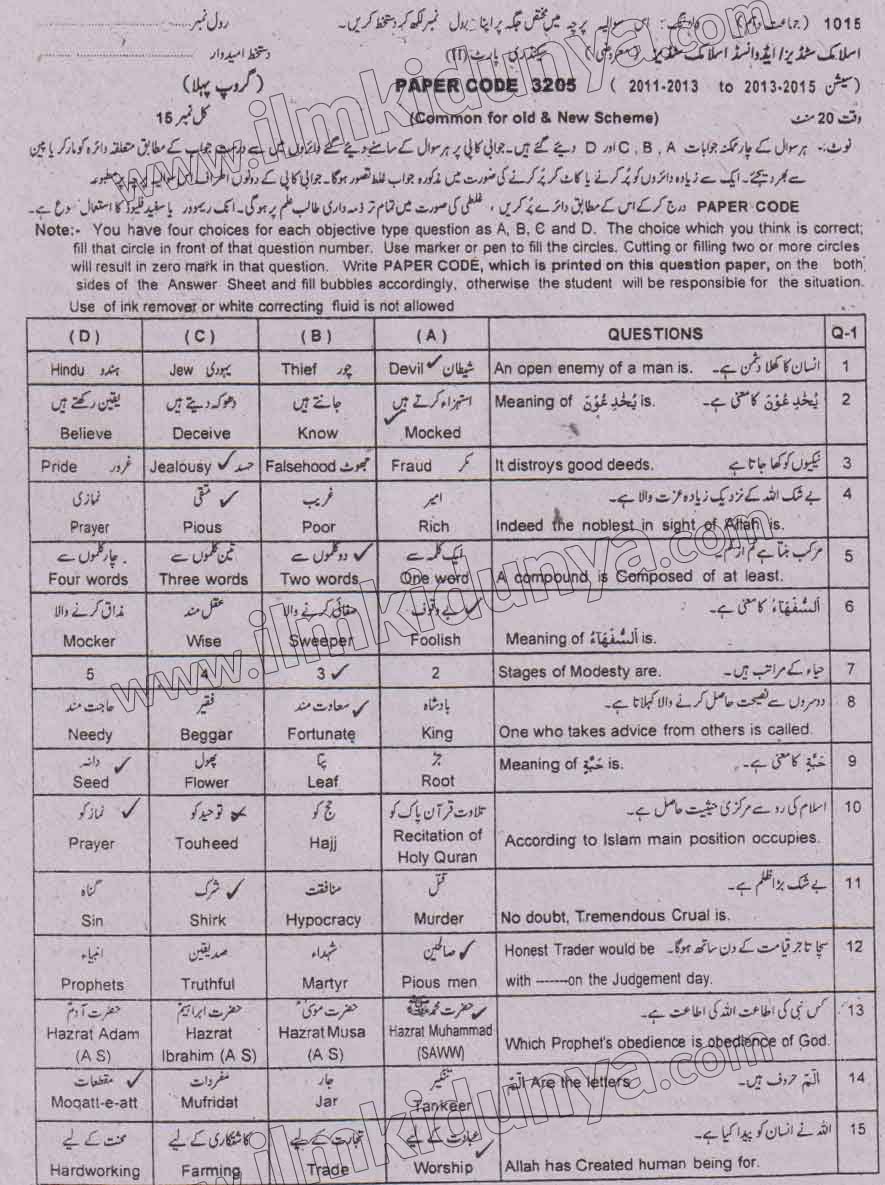 1015 (جماعت دہم) وارننگ:۔ اس سوالیہ پرچہ میں مختص جگہ پر اپنا رول نمبر لکھ کر دستخط کریں۔ رول نمبر
اسلامک سٹڈیز/ایڈوانسڈ اسلامک سٹڈیز (معروضی) سیکنڈری پارٹ (II) دستخط امیدوار
(سیشن 2011-2013 to 2013-2015) PAPER CODE 3205 (گروپ پہلا)
وقت 20 منٹ (Common for old & New Scheme) کل نمبر 15
نوٹ:۔ ہر سوال کے چار ممکنہ جوابات A ، B ، C اور D دیئے گئے ہیں۔ جوابی کاپی پر ہر سوال کے سامنے دیئے گئے دائروں میں سے درست جواب کے مطابق متعلقہ دائرہ کو مارکر یا پین
سے بھر دیجئے۔ ایک سے زیادہ دائروں کو پُر کرنے یا کاٹ کر پُر کرنے کی صورت میں مذکورہ جواب غلط تصور ہوگا۔ جوابی کاپی کے دونوں اطراف اس سوالیہ پرچہ پر مطبوعہ
PAPER CODE درج کر کے اس کے مطابق دائرے پُر کریں، غلطی کی صورت میں تمام تر ذمہ داری طالب علم پر ہوگی۔ انک ریموور یا سفید فلیوڈ کا استعمال ممنوع ہے۔
Note:- You have four choices for each objective type question as A, B, C and D. The choice which you think is correct;
fill that circle in front of that question number. Use marker or pen to fill the circles. Cutting or filling two or more circles
will result in zero mark in that question. Write PAPER CODE, which is printed on this question paper, on the both
sides of the Answer Sheet and fill bubbles accordingly, otherwise the student will be responsible for the situation.
Use of ink remover or white correcting fluid is not allowed
(D) (C) (B) (A) QUESTIONS Q-1
Hindu ہندو Jew یہودی Thief چور Devil شیطان An open enemy of a man is. انسان کا کھلا دشمن ہے۔ 1
یقین رکھتے ہیں دھوکہ دیتے ہیں جانتے ہیں استہزاء کرتے ہیں Meaning of یُخٰدِعُوْنَ is. یُخٰدِعُوْنَ کا معنی ہے۔ 2
Believe Deceive Know Mocked
Pride غرور Jealousy حسد Falsehood جھوٹ Fraud مکر It distroys good deeds. نیکیوں کو کھا جاتا ہے 3
نمازی متقی غریب امیر بے شک اللہ کے نزدیک زیادہ عزت والا ہے۔ 4
Prayer Pious Poor Rich Indeed the noblest in sight of Allah is.
چار کلموں سے تین کلموں سے دو کلموں سے ایک کلمہ سے مرکب بنتا ہے کم از کم۔ 5
Four words Three words Two words One word A compound is Composed of at least.
مذاق کرنے والا عقل مند صفائی کرنے والا بے وقوف اَلسُّفَهَآءُ کا معنی ہے۔ 6
Mocker Wise Sweeper Foolish Meaning of اَلسُّفَهَآءُ is.
5 4 3 2 Stages of Modesty are. حیاء کے مراتب ہیں۔ 7
حاجت مند فقیر سعادت مند بادشاہ دوسروں سے نصیحت حاصل کرنے والا کہلاتا ہے۔ 8
Needy Beggar Fortunate King One who takes advice from others is called.
دانہ پھول پتا جڑ Meaning of حَبَّةٍ is. حَبَّةٍ کا معنی ہے۔ 9
Seed Flower Leaf Root
نماز کو توحید کو حج کو تلاوت قرآن پاک کو اسلام کی رو سے مرکزی حیثیت حاصل ہے۔ 10
Prayer Touheed Hajj Recitation of According to Islam main position occupies.
Holy Quran
گناہ شرک منافقت قتل بے شک بڑا ظلم ہے۔ 11
Sin Shirk Hypocracy Murder No doubt, Tremendous Crual is.
انبیاء صدیقین شہداء صالحین Honest Trader would be سچا تاجر قیامت کے دن ساتھ ہوگا۔ 12
Prophets Truthful Martyr Pious men with -------on the Judgement day.
حضرت آدمؑ حضرت ابراہیمؑ حضرت موسیٰؑ حضرت محمدﷺ کس نبی کی اطاعت اللہ کی اطاعت ہے۔ 13
Hazrat Adam Hazrat Hazrat Musa Hazrat Muhammad Which Prophet's obedience is obedience of God.
(A S) Ibrahim (A S) (A S) (SAWW)
مقطعات مفردات جار تنکیر الٓمّٓ Are the letters الٓمّٓ حروف ہیں۔ 14
Moqatt-e-att Mufridat Jar Tankeer
محنت کے لیے کاشتکاری کے لیے تجارت کے لیے عبادت کے لیے اللہ نے انسان کو پیدا کیا ہے۔ 15
Hardworking Farming Trade Worship Allah has Created human being for.
www.ilmkidunya.com
www.ilmkidunya.com
www.ilmkidunya.com